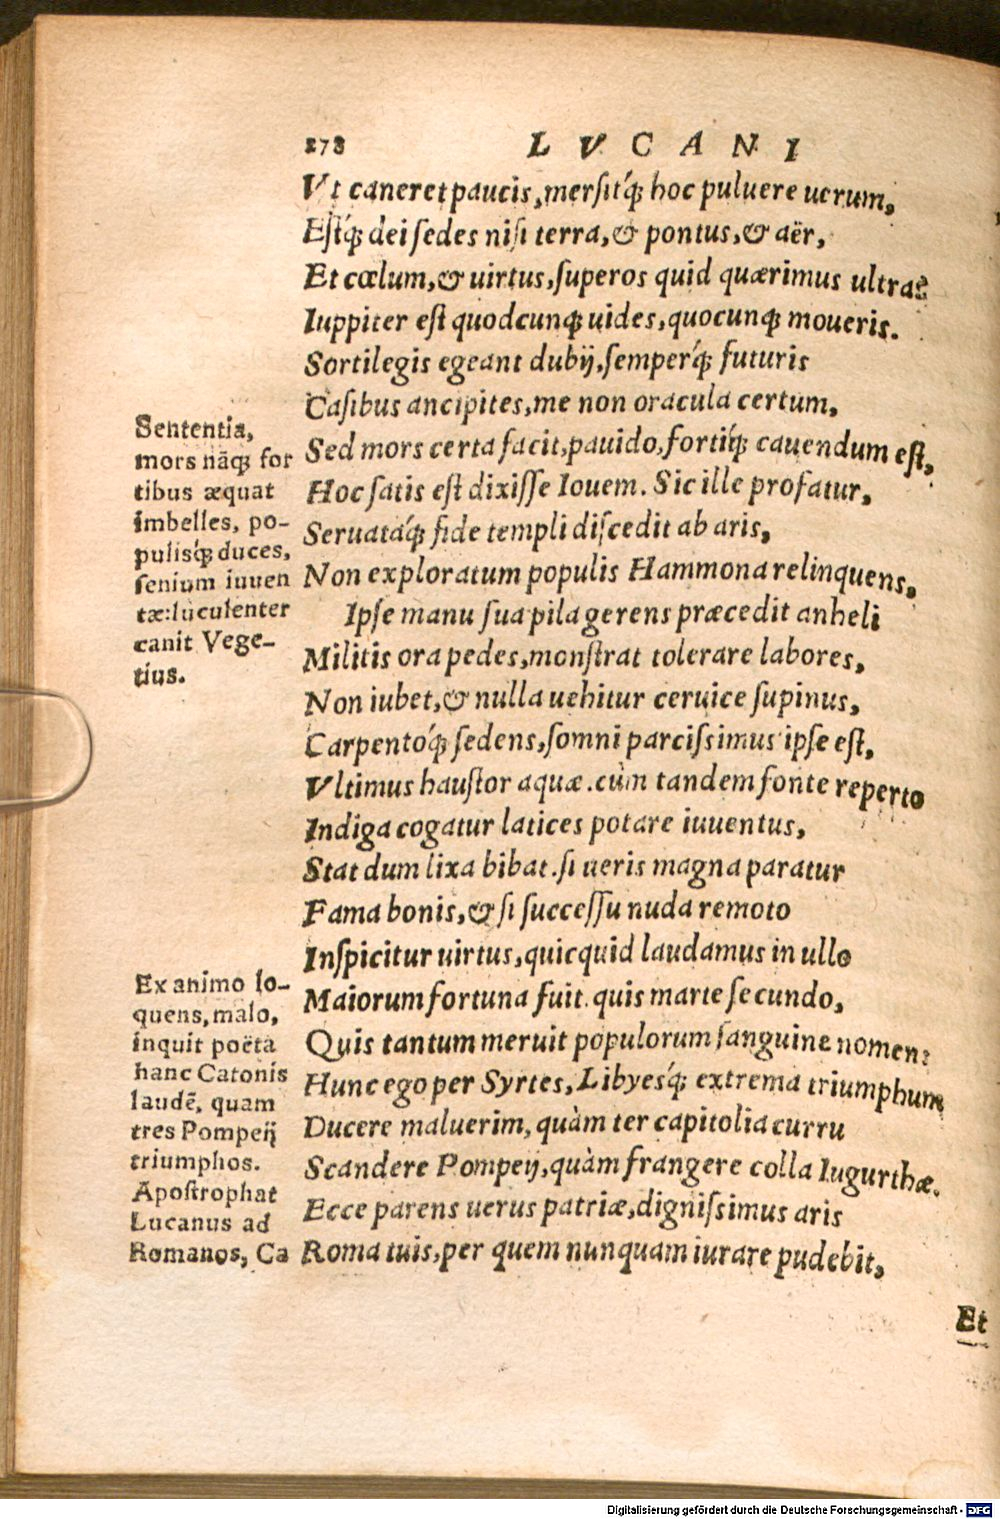 278 LVCANI
Vt caneret paucis, mersitq́ꝫ hoc puluere uerum,
Estq́ꝫ dei sedes nisi terra, & pontus, & aër,
Et cœlum, & uirtus, superos quid quærimus ultra?
Iuppiter est quodcunqꝫ uides, quocunqꝫ moueris.
Sortilegis egeant dubij, semperq́ꝫ futuris
Casibus ancipites, me non oracula certum,
Sed mors certa facit, pauido, fortiq́ꝫ cauendum est,
Hoc satis est dixisse Iouem. Sic ille profatur,
Seruatáqꝫ fide templi discedit ab aris,
Non exploratum populis Hammona relinquens,
Ipse manu sua pila gerens præcedit anheli
Militis ora pedes, monstrat tolerare labores,
Non iubet, & nulla uehitur ceruice supinus,
Carpentoq́ꝫ sedens, somni parcissimus ipse est,
Vltimus haustor aquæ. cùm tandem fonte reperto
Indiga cogatur latices potare iuuentus,
Stat dum lixa bibat. si ueris magna paratur
Fama bonis, & si successu nuda remoto
Inspicitur uirtus, quicquid laudamus in ullo
Maiorum fortuna fuit. quis marte secundo,
Quis tantum meruit populorum sanguine nomen?
Hunc ego per Syrtes, Libyesq́ꝫ extrema triumphum
Ducere maluerim, quàm ter capitolia curru
Scandere Pompeij, quàm frangere colla Iugurthæ.
Ecce parens uerus patriæ, dignissimus aris
Roma tuis, per quem nunquam iurare pudebit,
Et
Sententia,
mors nãqꝫ for
tibus æquat
imbelles, po-
pulisq́ꝫ duces,
senium iuuen
tæ: luculenter
canit Vege-
tius.
Ex animo lo-
quens, malo,
inquit poëta
hanc Catonis
laudẽ, quam
tres Pompeij
triumphos.
Apostrophat
Lucanus ad
Romanos, Ca
Digitalisierung gefördert durch die Deutsche Forschungsgemeinschaft - DFG